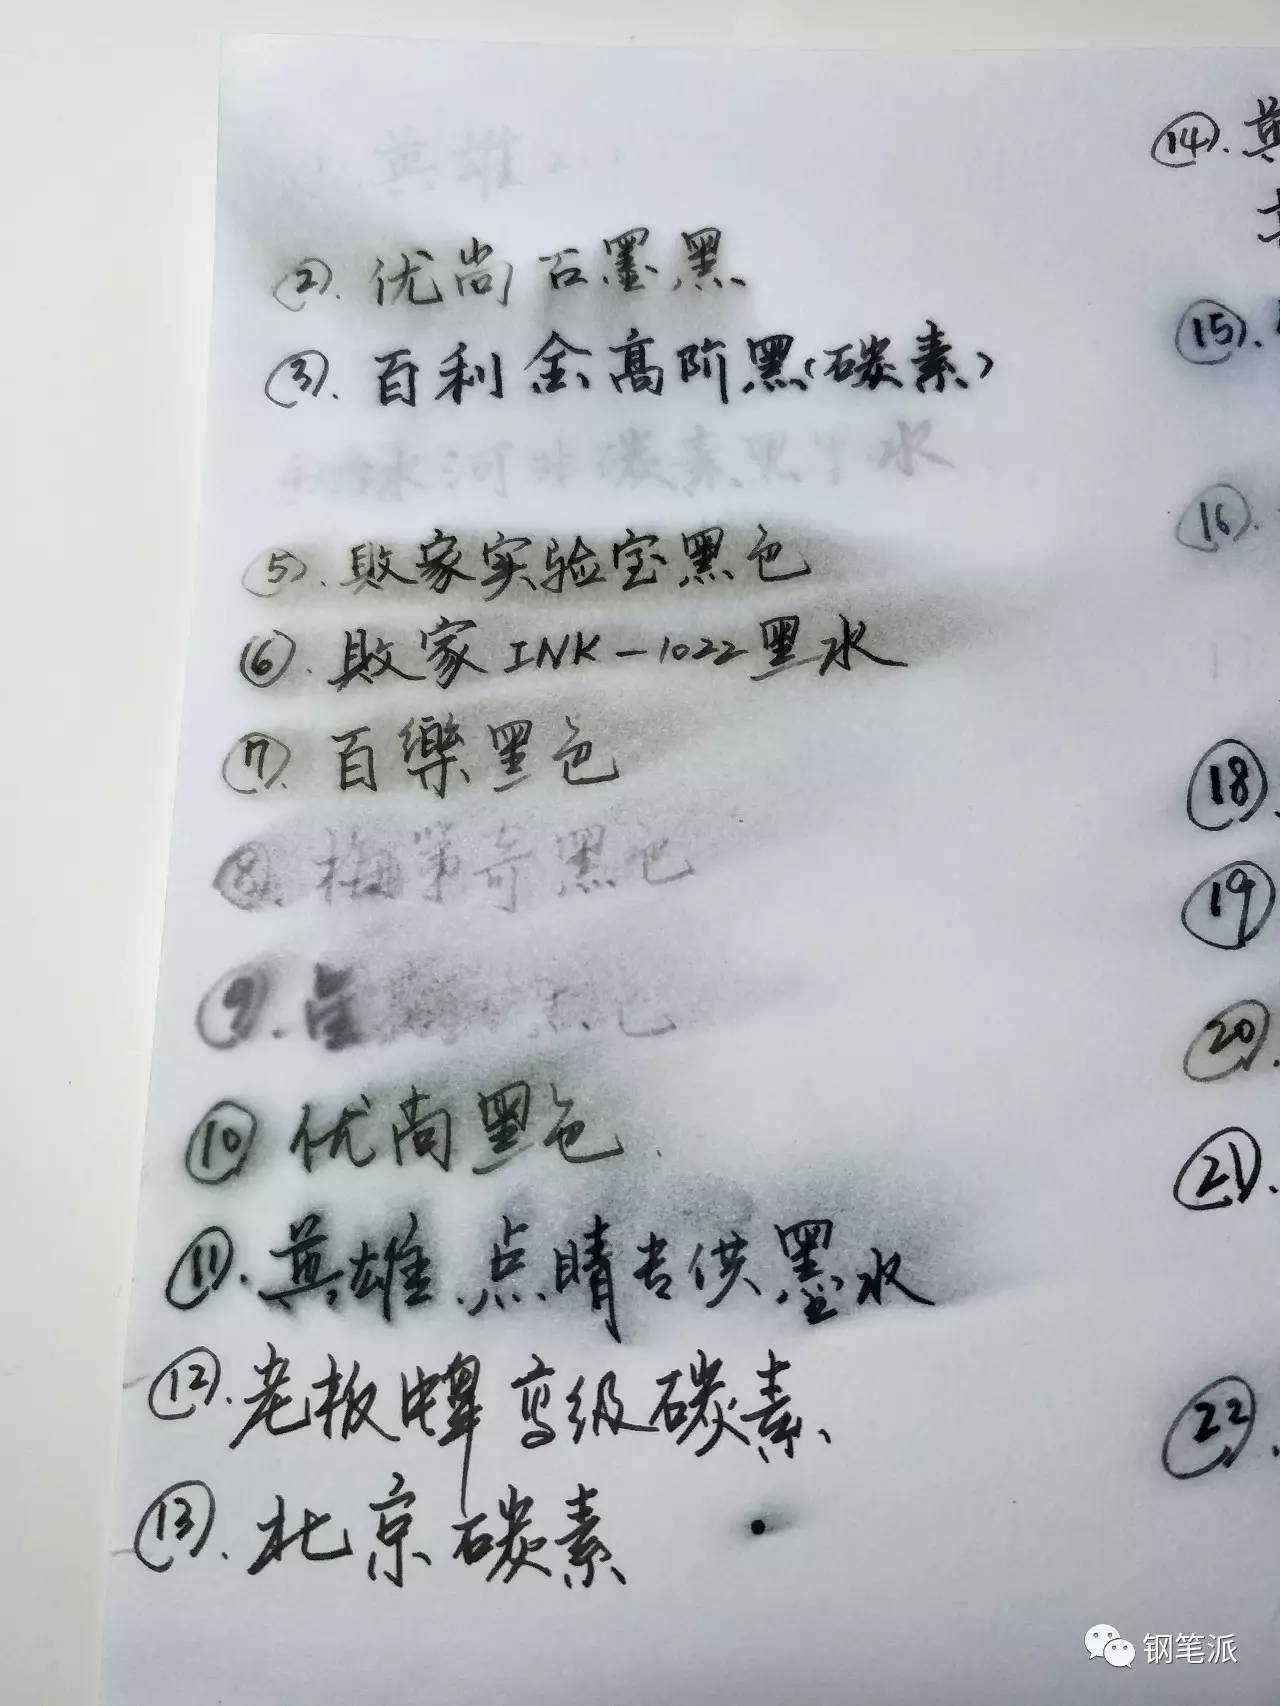 英雄
②. 优尚石墨黑
③. 百利金高阶黑(碳素)
冰河非碳素黑 水
⑤. 敗家实验宝黑色
⑥. 敗家 INK-1022 墨水
⑦. 百樂黑色
⑧. 梅第奇黑色
⑨. 黑色
⑩ 优尚黑色.
⑪. 英雄 点睛专供墨水
⑫. 老板牌高级碳素
⑬. 北京碳素
⑭. 英
⑮.
⑯.
⑱
⑲
⑳.
㉑.
㉒.
钢笔派